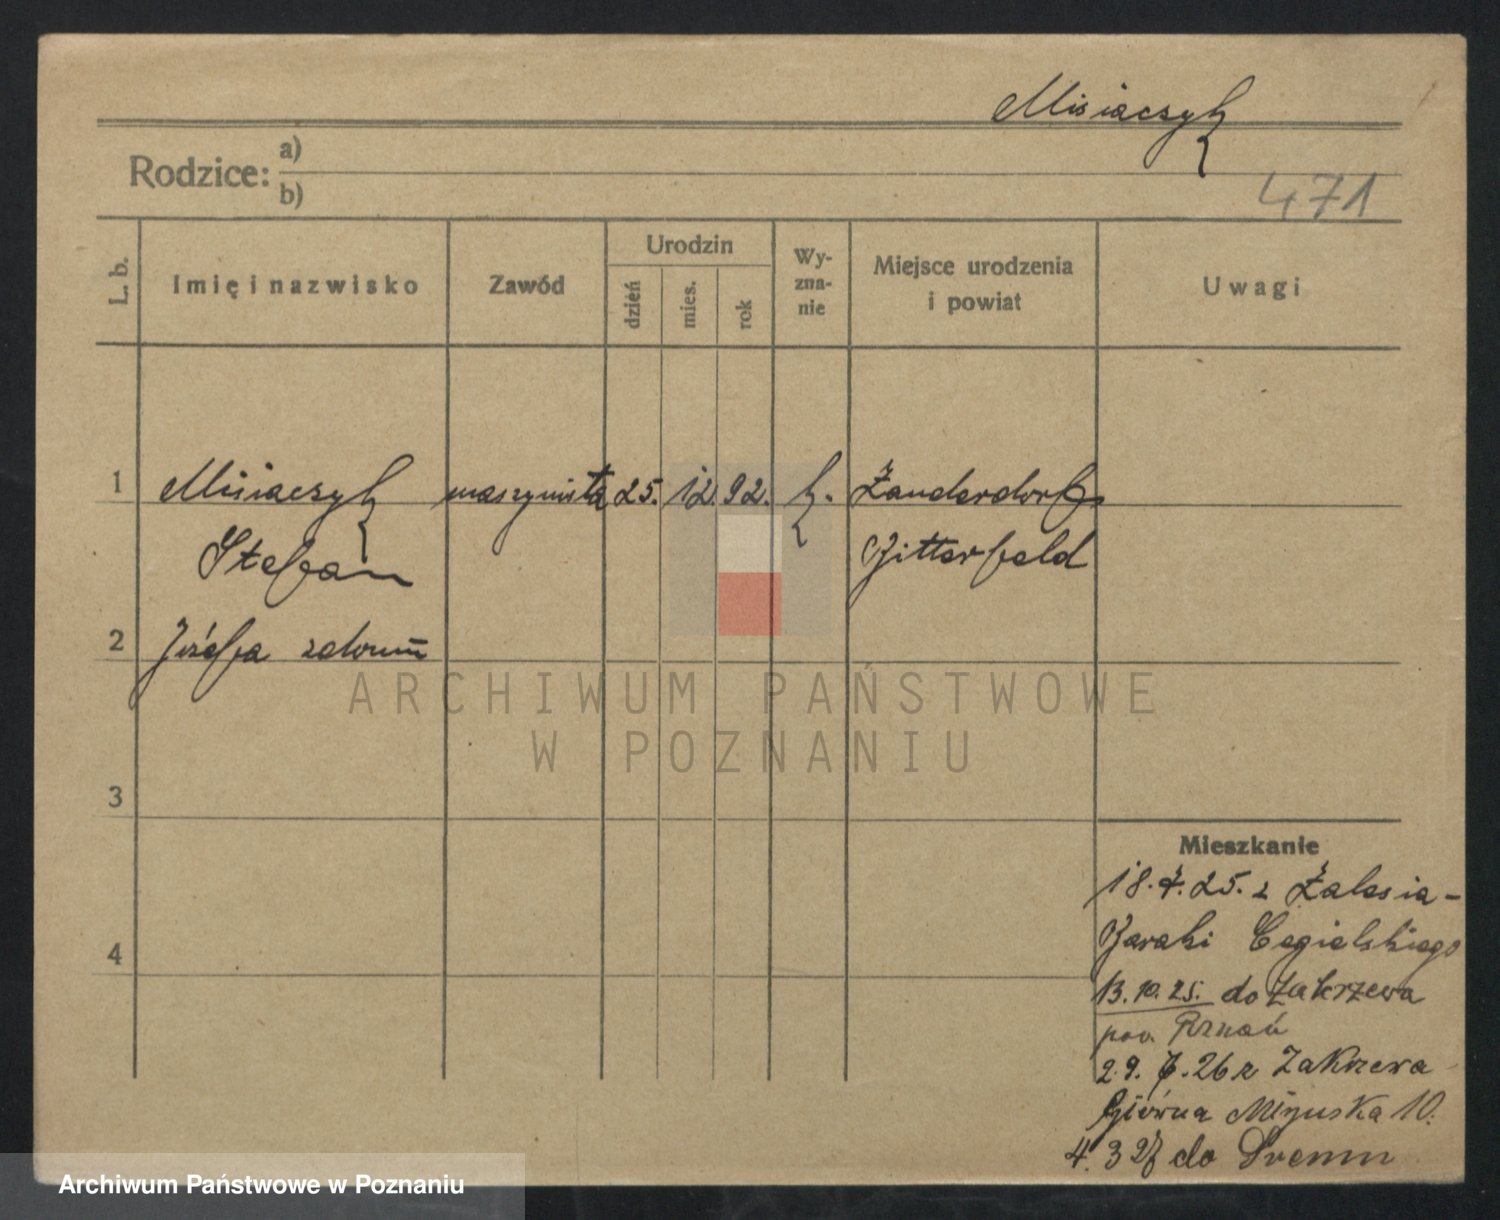 Misiaczyk
Rodzice: a)
b)
471
L. b.
Imię i nazwisko
Zawód
Urodzin
dzień
mies.
rok
Wy-
zna-
nie
Miejsce urodzenia
i powiat
Uwagi
1 Misiaczyk maszynista 25. 12. 92. k. Zandersdorf
Stefan Bitterfeld
2 Józefa
3
4
Mieszkanie
18.7.25. z Zalesia-
Baraki Cegielskiego
13.10.25. do Zakrzewa
pow. Poznań
29. 26 z Zakrzewa
Główna 10.
4.3 27 do Śremu
ARCHIWUM PAŃSTWOWE
W POZNANIU
Archiwum Państwowe w Poznaniu